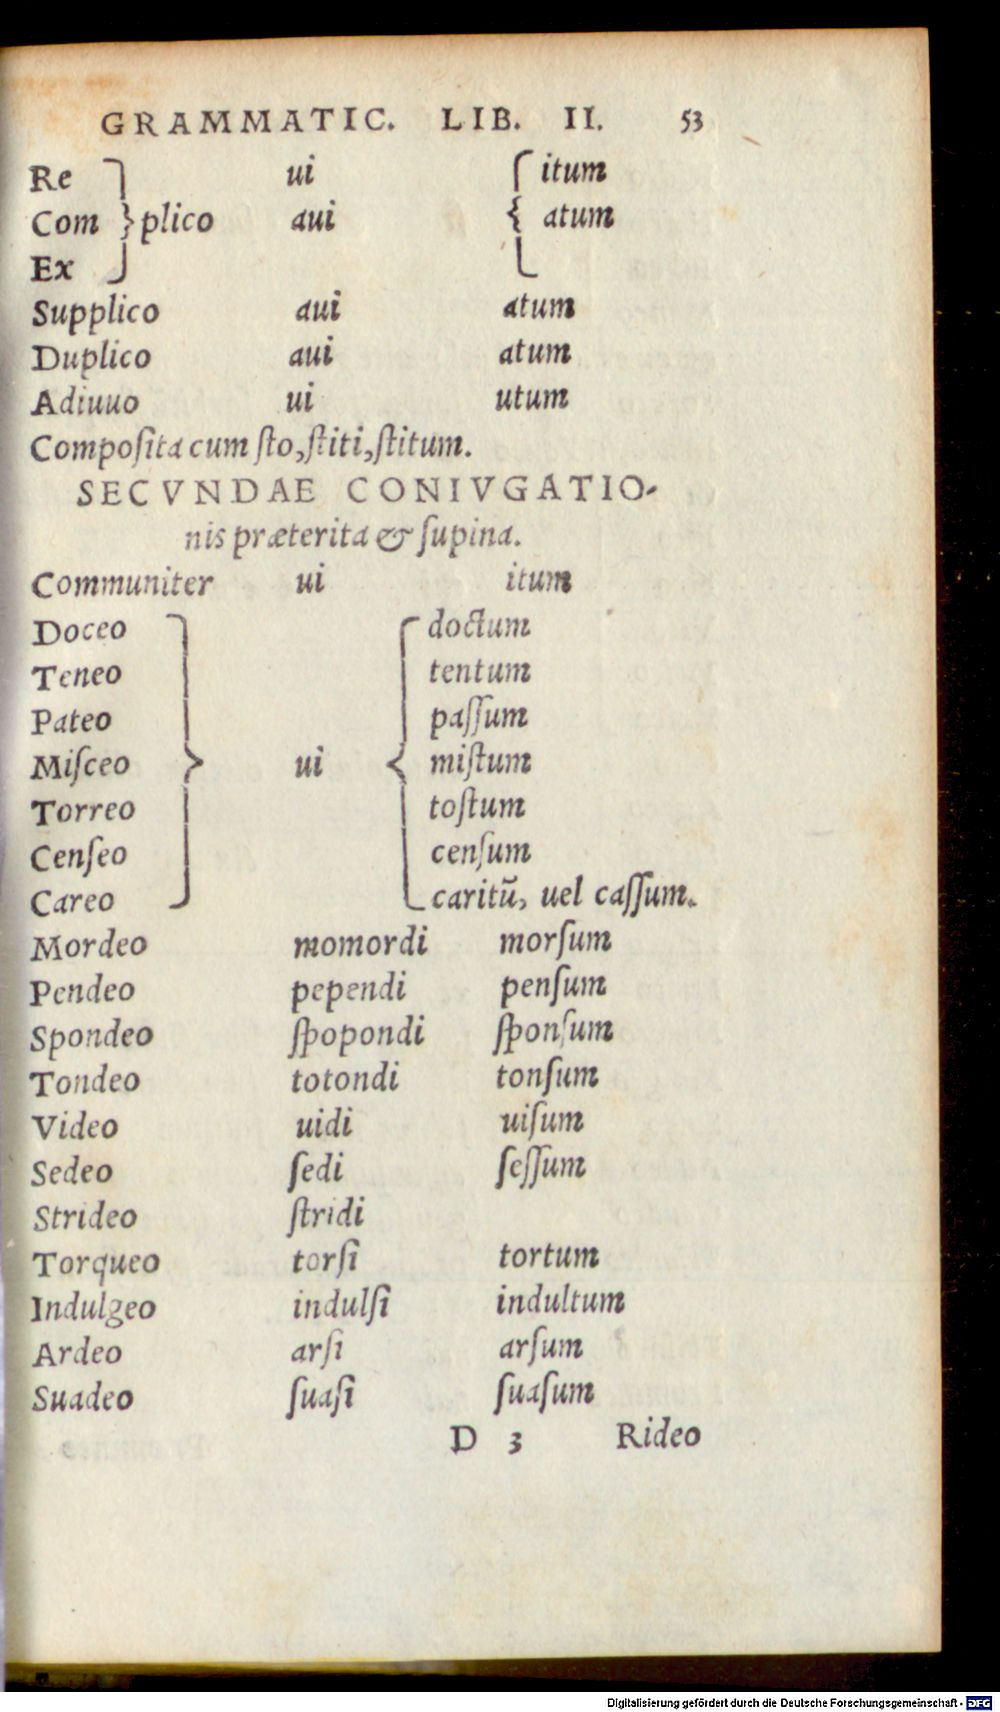 GRAMMATIC. LIB. II. 53
Re ui itum
Com } plico aui { atum
Ex
Supplico aui atum
Duplico aui atum
Adiuuo ui utum
Compoſita cum ſto, ſtiti, ſtitum.
SECVNDAE CONIVGATIO-
nis præterita & ſupina.
Communiter ui itum
Doceo doctum
Teneo tentum
Pateo paſſum
Miſceo } ui { miſtum
Torreo toſtum
Cenſeo cenſum
Careo caritū, uel caſſum.
Mordeo momordi morſum
Pendeo pependi penſum
Spondeo ſpopondi ſponſum
Tondeo totondi tonſum
Video uidi uiſum
Sedeo ſedi ſeſſum
Strideo ſtridi
Torqueo torſi tortum
Indulgeo indulſi indultum
Ardeo arſi arſum
Suadeo ſuaſi ſuaſum
D 3 Rideo
Digitalisierung gefördert durch die Deutsche Forschungsgemeinschaft - DFG